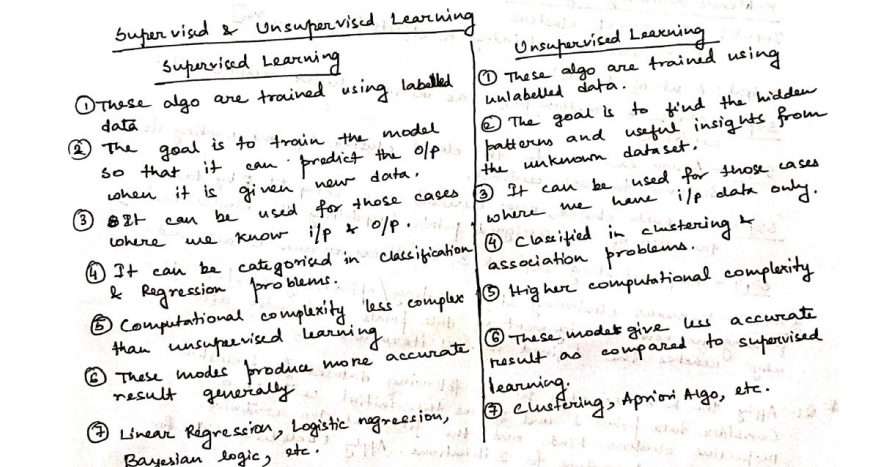 Supervised & Unsupervised Learning
Supervised Learning
① These algo are trained using labelled
data
② The goal is to train the model
so that it can predict the o/p
when it is given new data.
③ It can be used for those cases
where we know i/p & o/p.
④ It can be categorised in classification
& Regression problems.
⑤ Computational complexity less complex
than unsupervised learning
⑥ These modes produce more accurate
result generally
⑦ Linear Regression, Logistic regression,
Bayesian logic, etc.
Unsupervised Learning
① These algo are trained using
unlabelled data.
② The goal is to find the hidden
patterns and useful insights from
the unknown dataset.
③ It can be used for those cases
where we have i/p data only.
④ Classified in clustering &
association problems.
⑤ Higher computational complexity
⑥ These models give less accurate
result as compared to supervised
learning.
⑦ Clustering, Apriori Algo, etc.